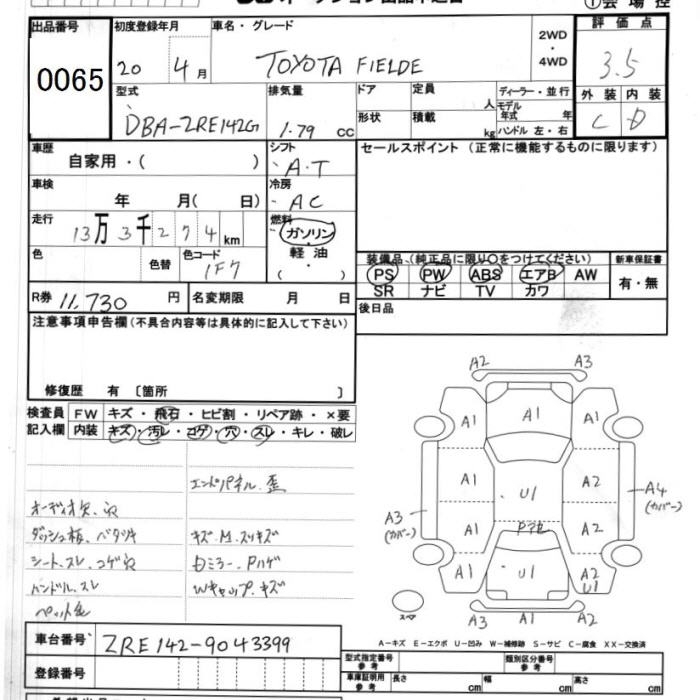 出品番号 初度登録年月 車名・グレード 2WD・4WD 評価点
0065 20 4月 TOYOTA FIELDE 3.5
型式 排気量 ドア 定員 人 ディーラー・並行 外装 内装
DBA-ZRE142G 1.79 CC 形状 積載 kg モデル年式 年 ハンドル 左・右 C D
車歴 自家用・( ) シフト A.T セールスポイント (正常に機能するものに限ります)
車検 年 月( 日) 冷房 AC
走行 13万3千274km 燃料 ガソリン・軽油 ( )
色 色替 色コード 1F7
装備品 (純正品に限り〇をつけてください) 新車保証書
PS PW ABS エアB AW 有・無
SR ナビ TV カワ
R券 11,730 円 名変期限 月 日 後日品
注意事項申告欄(不具合内容等は具体的に記入して下さい)
修復歴 有 〔箇所 〕
検査員 FW キズ・飛石・ヒビ割・リペア跡・×要
記入欄 内装 キズ・汚レ・コゲ・穴・スレ・キレ・破レ
エンドパネル.歪
オーディオ欠.穴
ダッシュ板.ベタツキ キズ.M.スリキズ
シート.スレ.コゲ穴 Dミラー.Pハゲ
ハンドル.スレ Wキャップ.キズ
A2 A3
A1 A1 A1
A1 U1 A2
A3 (カバー) A4 (カバー)
A1 A2
A1 U1 A2 U1
スペア A3 A1 A2
A-キズ E-エクボ U-凹み W-補修跡 S-サビ C-腐食 XX-交換済
車台番号 ZRE142-9043399
型式指定番号 参考 類別区分番号 参考
登録番号 車庫証明用 参考 長さ cm 幅 cm 高さ cm